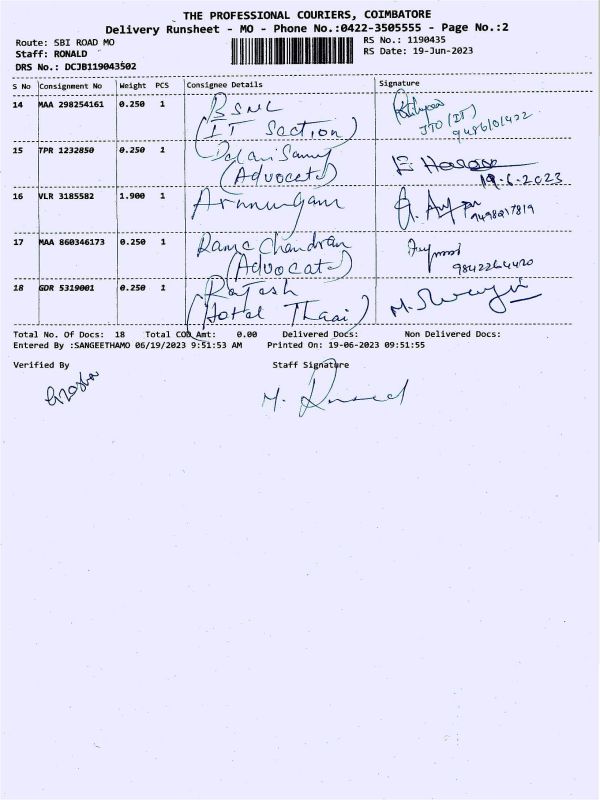 THE PROFESSIONAL COURIERS, COIMBATORE
Delivery Runsheet - MO - Phone No.:0422-3505555 - Page No.:2
Route: SBI ROAD MO
RS No.: 1190435
Staff: RONALD
RS Date: 19-Jun-2023
DRS No.: DCJB119043502
S No Consignment No Weight PCS Consignee Details Signature
14 MAA 298254161 0.250 1 BSNL
(IT Section) JTO (IT)
9486101422
15 TPR 1232850 0.250 1
(Advocate)
19.6.2023
16 VLR 3185582 1.900 1 Arumugam
17 MAA 860346173 0.250 1 Rama Chandran
(Advocate) 9842264420
18 GDR 5319001 0.250 1 Rajesh
(Hotel Thaai)
Total No. Of Docs: 18 Total COD Amt: 0.00 Delivered Docs: Non Delivered Docs:
Entered By :SANGEETHAMO 06/19/2023 9:51:53 AM Printed On: 19-06-2023 09:51:55
Verified By Staff Signature